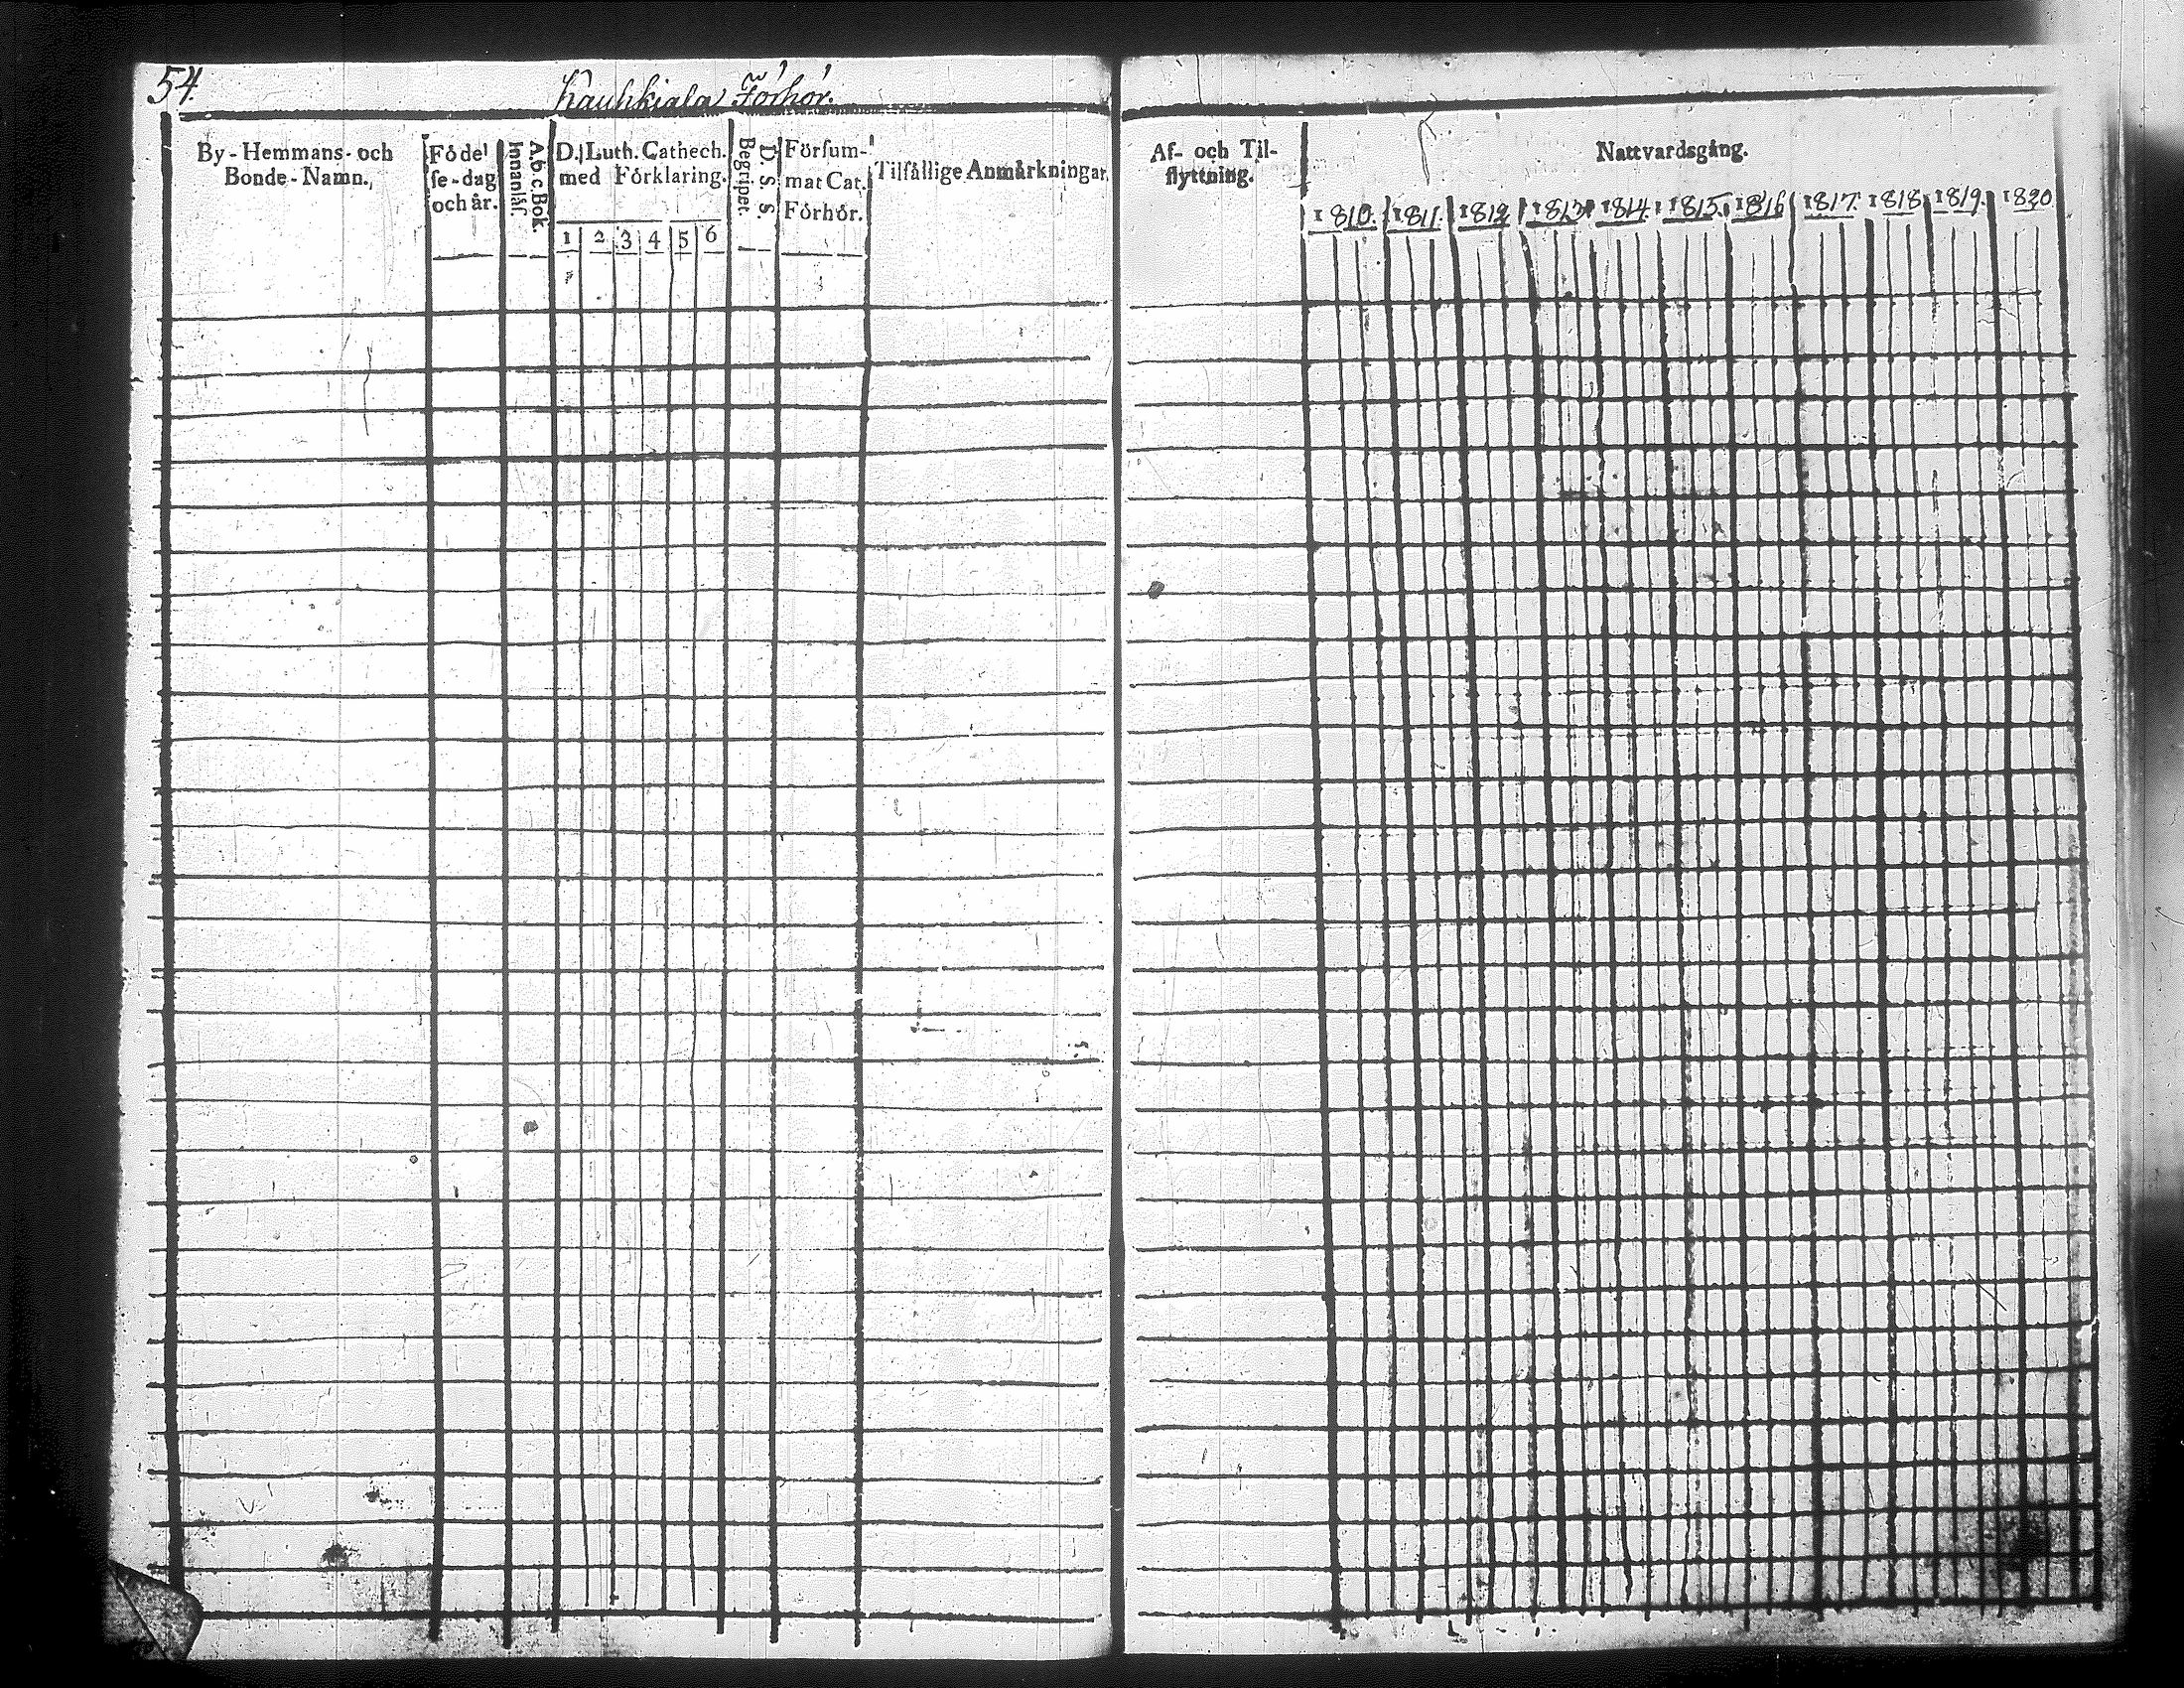 54.
Kauhkiala Förhör.
By-Hemmans- och
Bonde-Namn.
Födel
se-dag
och år.
A.b.c.Bok.
Innanläs.
D. Luth. Cathech.
med Förklaring.
1 2 3 4 5 6
D. S. S.
Begripet.
Försum-
mat Cat.
Förhör.
Tilfällige Anmärkningar.
Af- och Til-
flyttning.
Nattvardsgång.
1810. 1811. 1812 1813 1814. 1815. 1816 1817. 1818. 1819. 1820